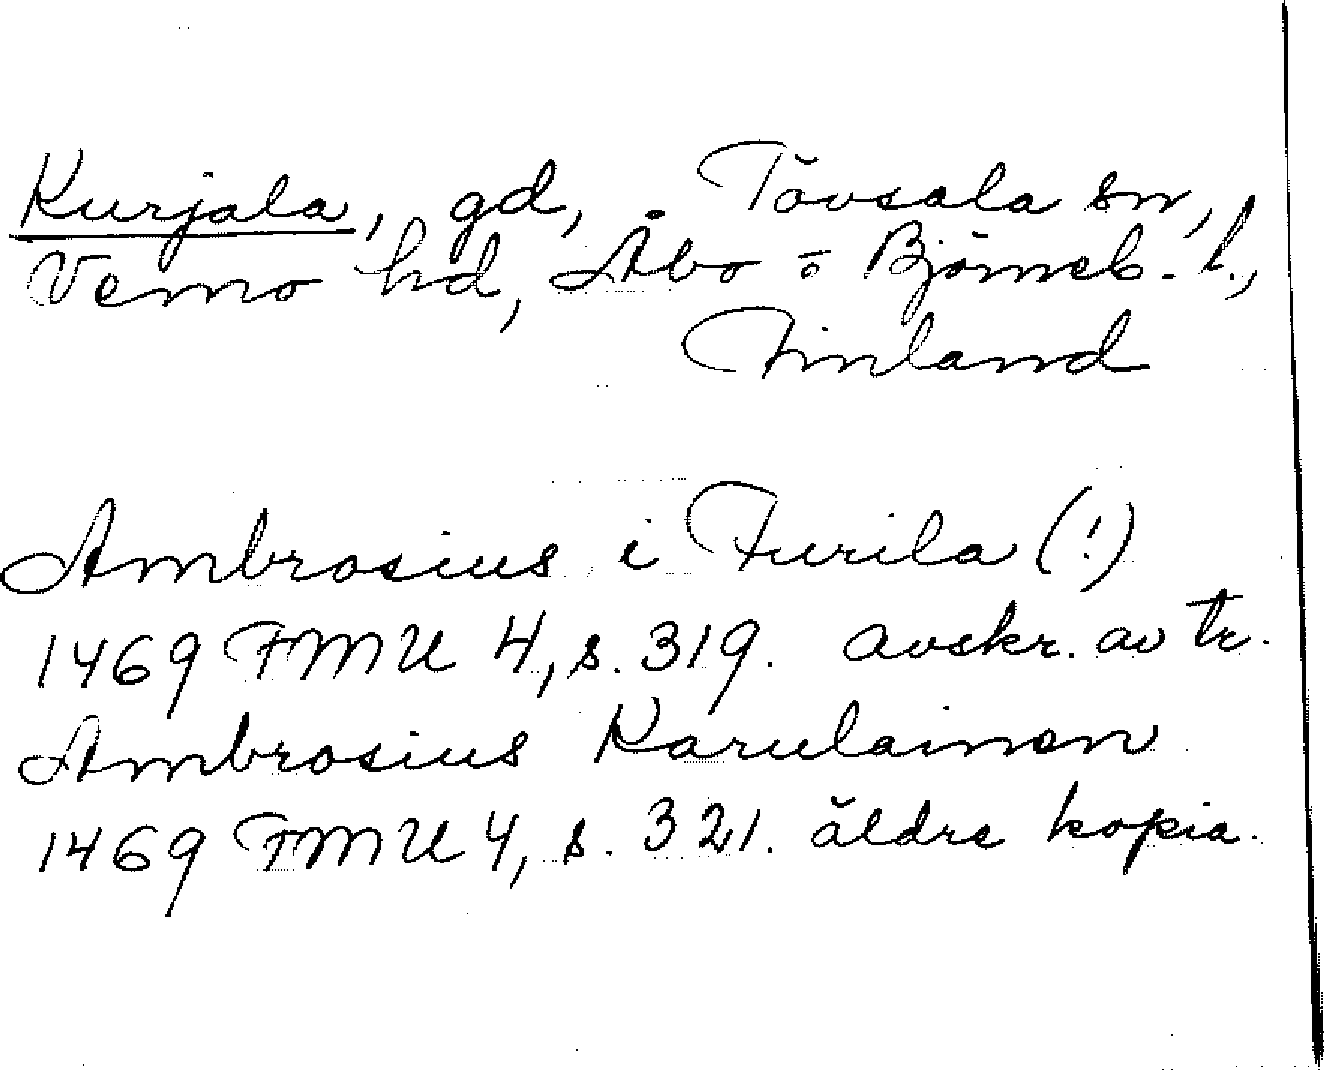 Kurjala, gd, Tövsala sn,
Vemo hd, Åbo o Björneb. l.,
Finland
Ambrosius i Furila (!)
1469 FMU 4, s. 319. avskr. av tr.
Ambrosius Karulainen
1469 FMU 4, s. 321. äldre kopia.